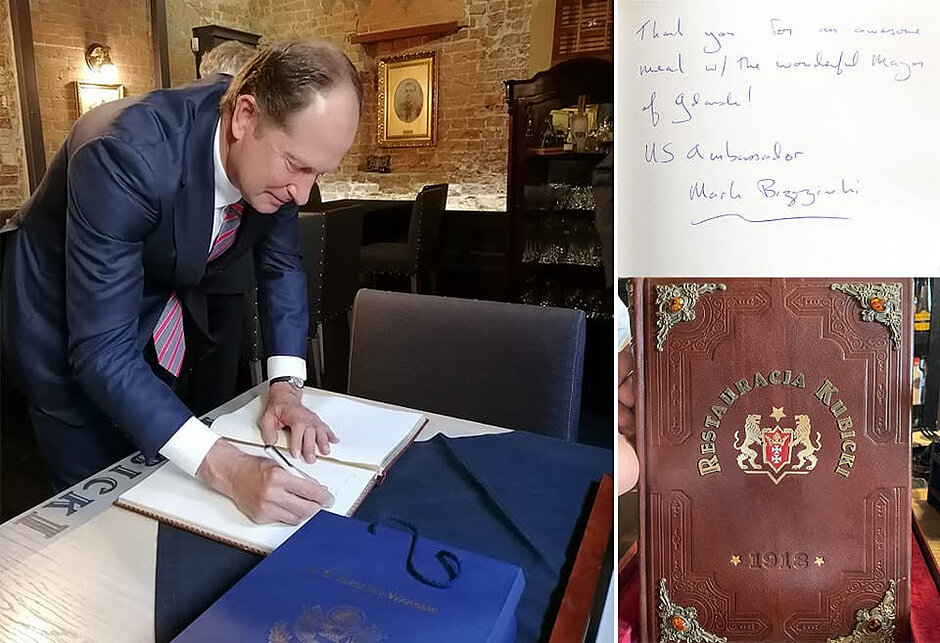 BICKI
Embassy Warsaw
Thank you for an awesome
meal w/ the wonderful Mayor
of Gdansk!
US Ambassador
Mark Brzezinski
RESTAURACJA KUBICKI
1918